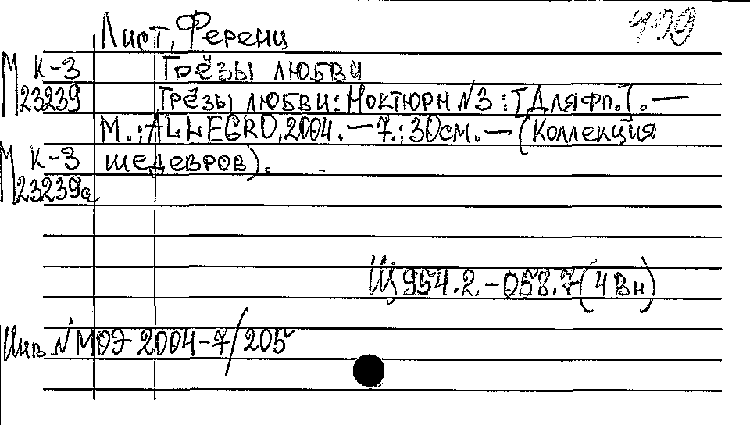 Лист, Ференц
К-3 Грёзы любви
М 23239 Грёзы любви: Ноктюрн N3 : [Для фп.]. —
М.: ALLEGRO, 2004. — 7.; 30см. — (Коллекция
М К-3 шедевров).
23239а
Щ 954.2-058.7(4Вн)
Инв N МОЭ 2004-7/205